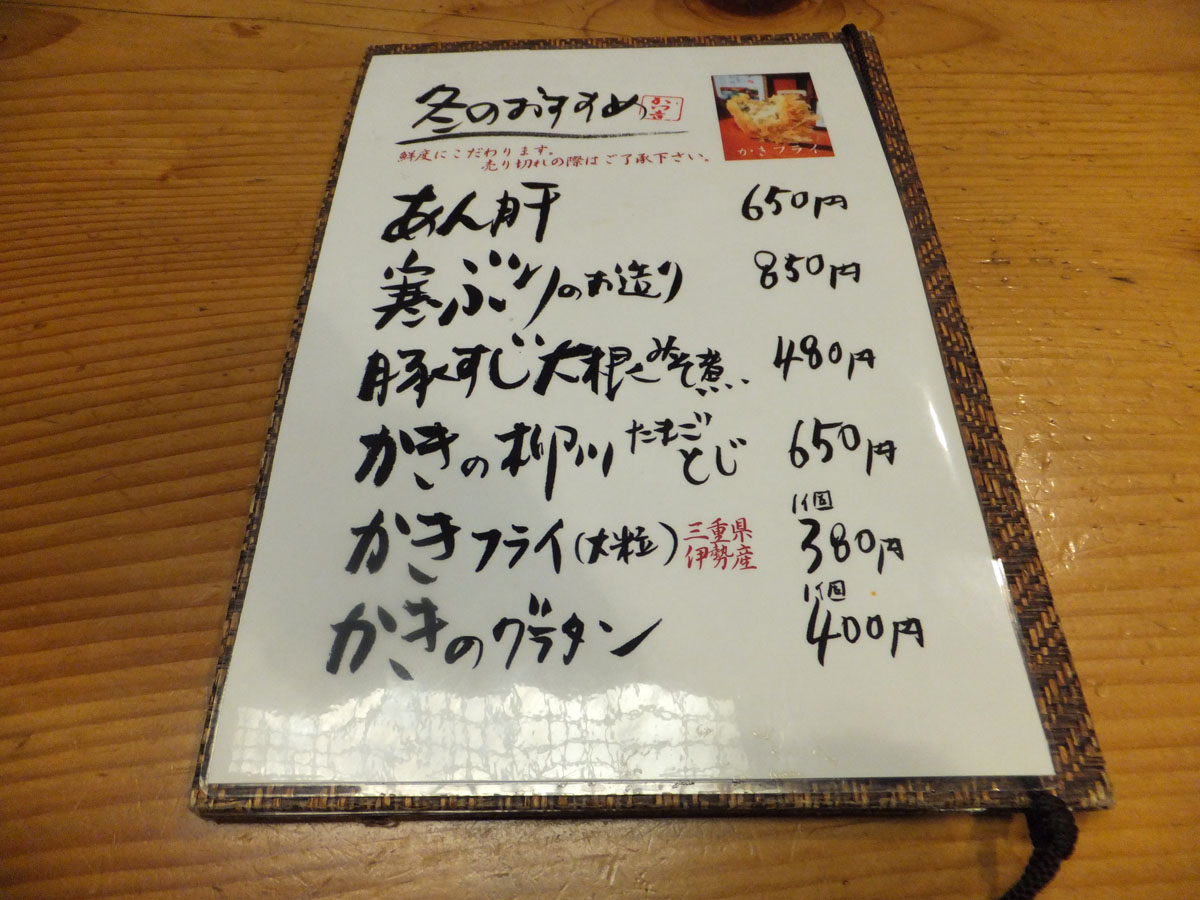 冬のおすすめ
鮮度にこだわります。
売り切れの際はご了承下さい。
かきフライ
あん肝 650円
寒ぶりのお造り 850円
豚すじ大根みそ煮 480円
かきの柳川 たまごとじ 650円
かきフライ(大粒) 三重県伊勢産 1個 380円
かきのグラタン 1個 400円